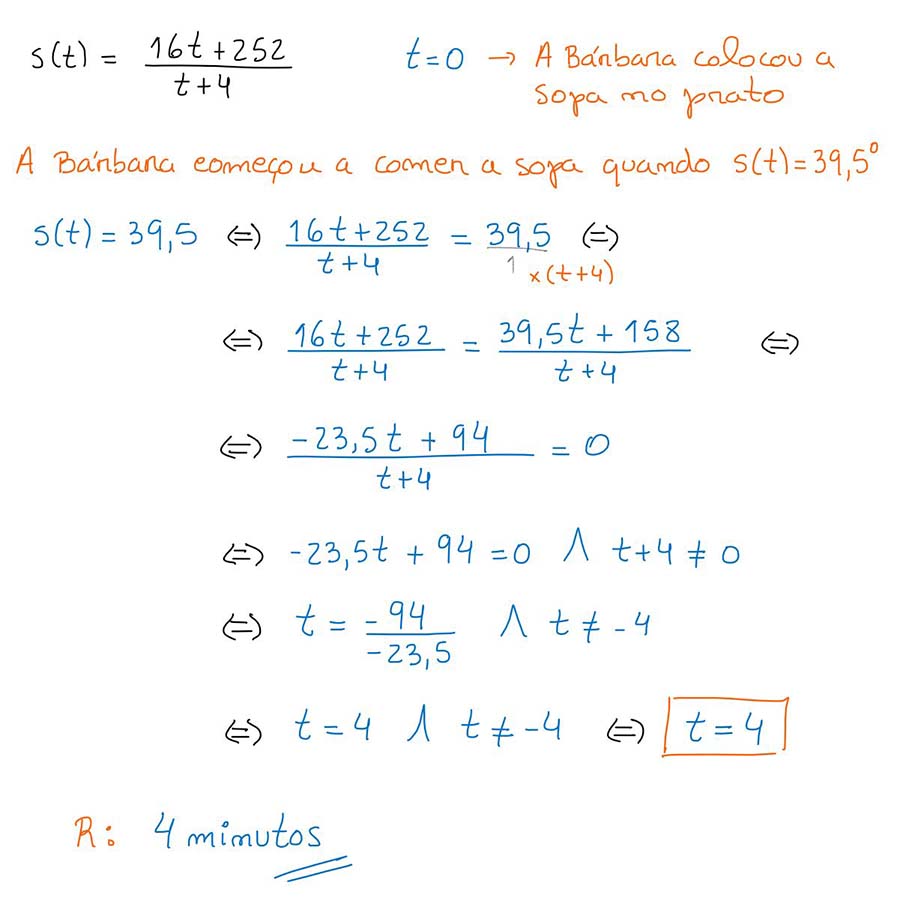 s(t) = (16t+252)/(t+4)    t=0 → A Bárbara colocou a
sopa no prato
A Bárbara começou a comer a sopa quando s(t)=39,5°
s(t) = 39,5 ⇔ (16t+252)/(t+4) = 39,5/1 ⇔
×(t+4)
⇔ (16t+252)/(t+4) = (39,5t+158)/(t+4) ⇔
⇔ (-23,5t+94)/(t+4) = 0
⇔ -23,5t + 94 = 0 ∧ t+4 ≠ 0
⇔ t = -94/-23,5 ∧ t ≠ -4
⇔ t = 4 ∧ t ≠ -4 ⇔ t = 4
R: 4 minutos